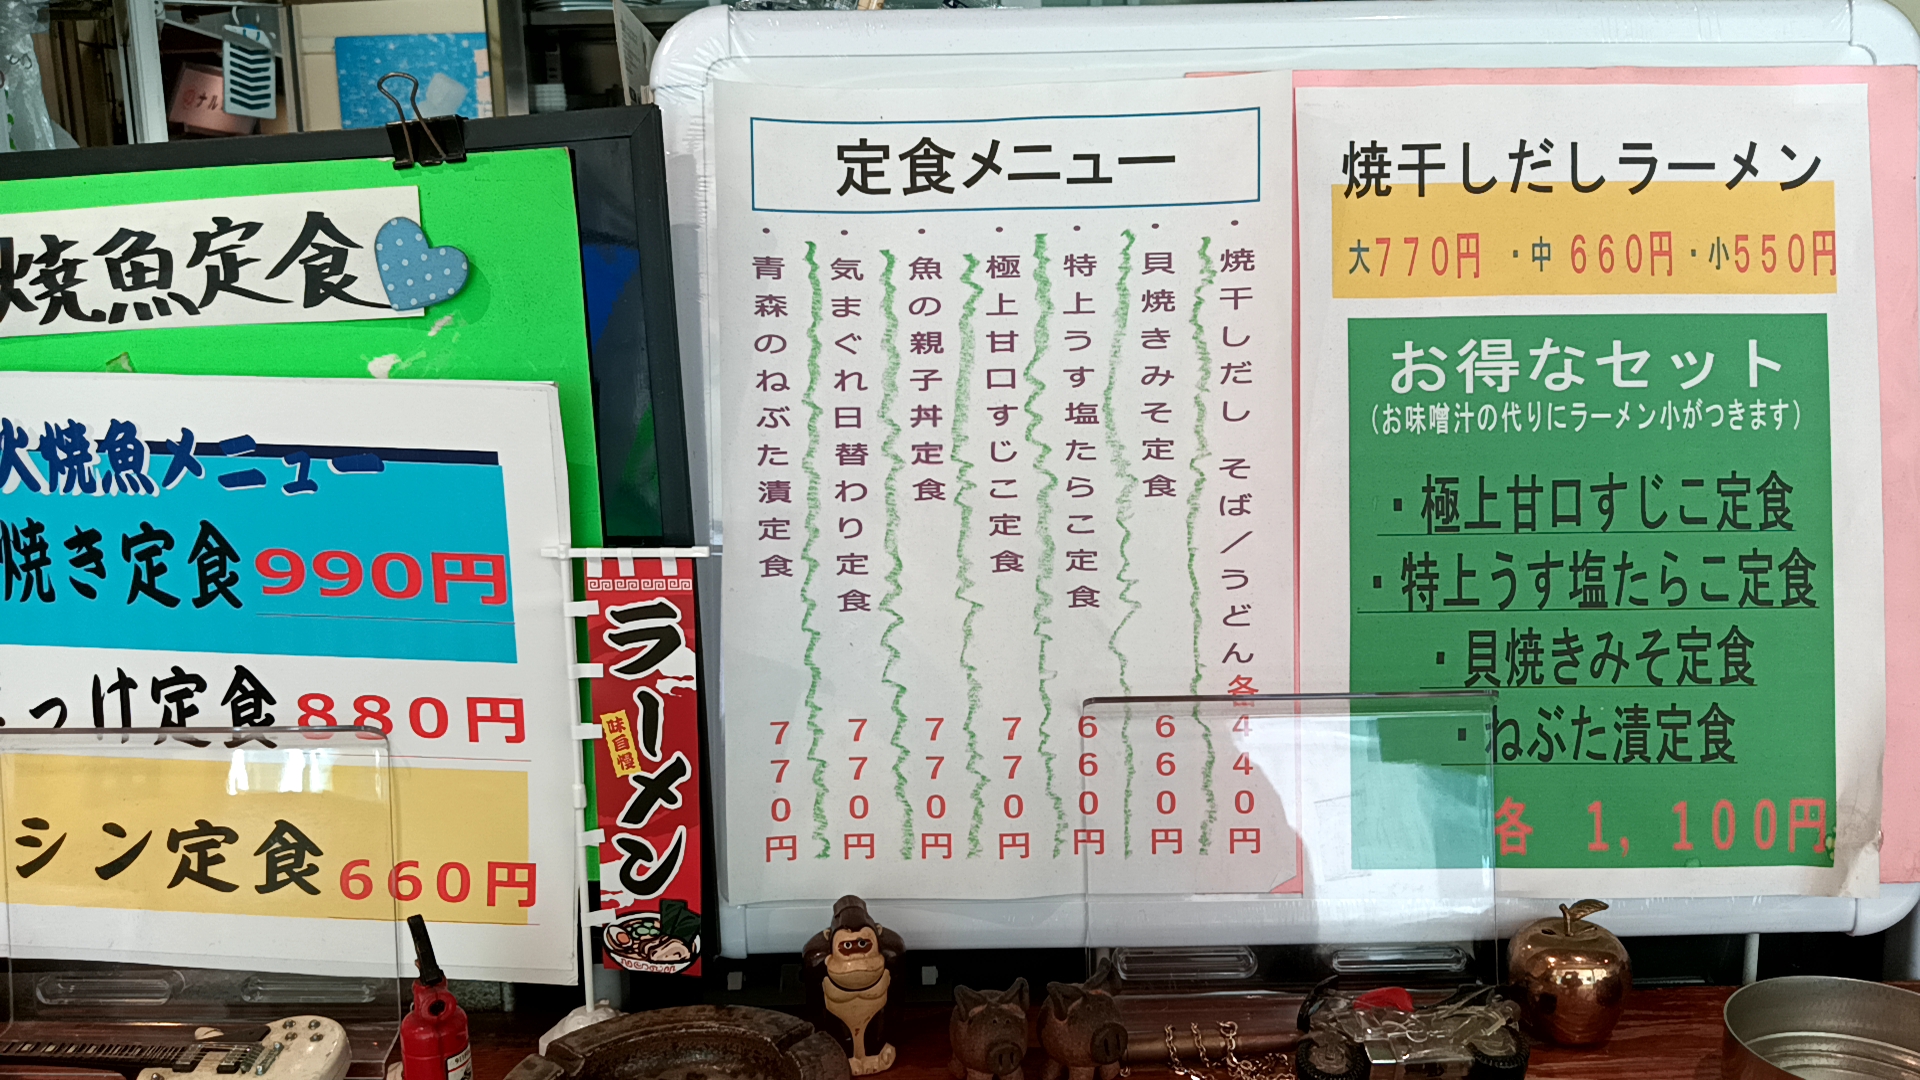 焼魚定食
火焼魚メニュー
焼き定食 990円
っけ定食 880円
シン定食 660円
ラーメン
味自慢
定食メニュー
・焼干しだし そば／うどん 各440円
・貝焼きみそ定食 660円
・特上うす塩たらこ定食 660円
・極上甘口すじこ定食 770円
・魚の親子丼定食 770円
・気まぐれ日替わり定食 770円
・青森のねぶた漬定食 770円
焼干しだしラーメン
大770円 ・中 660円 ・小550円
お得なセット
（お味噌汁の代りにラーメン小がつきます）
・極上甘口すじこ定食
・特上うす塩たらこ定食
・貝焼きみそ定食
・ねぶた漬定食
各 1，100円